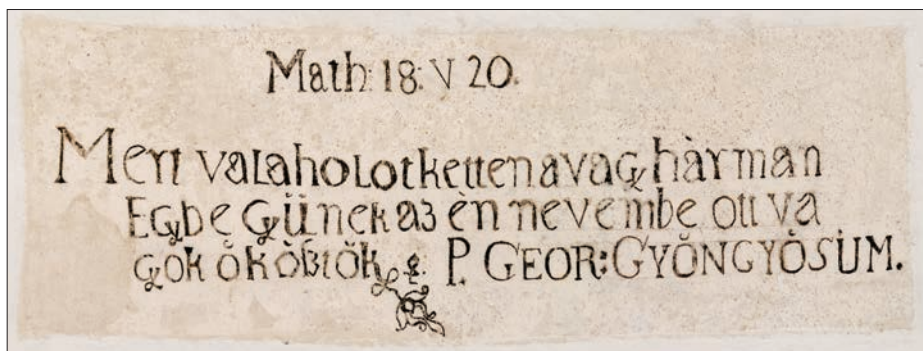 Math: 18: V 20.
Mert valaholot ketten avagy hàrman
Egybe gyünek az èn nevembe ott va
gyok ő kòßtök P. GEOR: GYŎNGYŎSÜM.